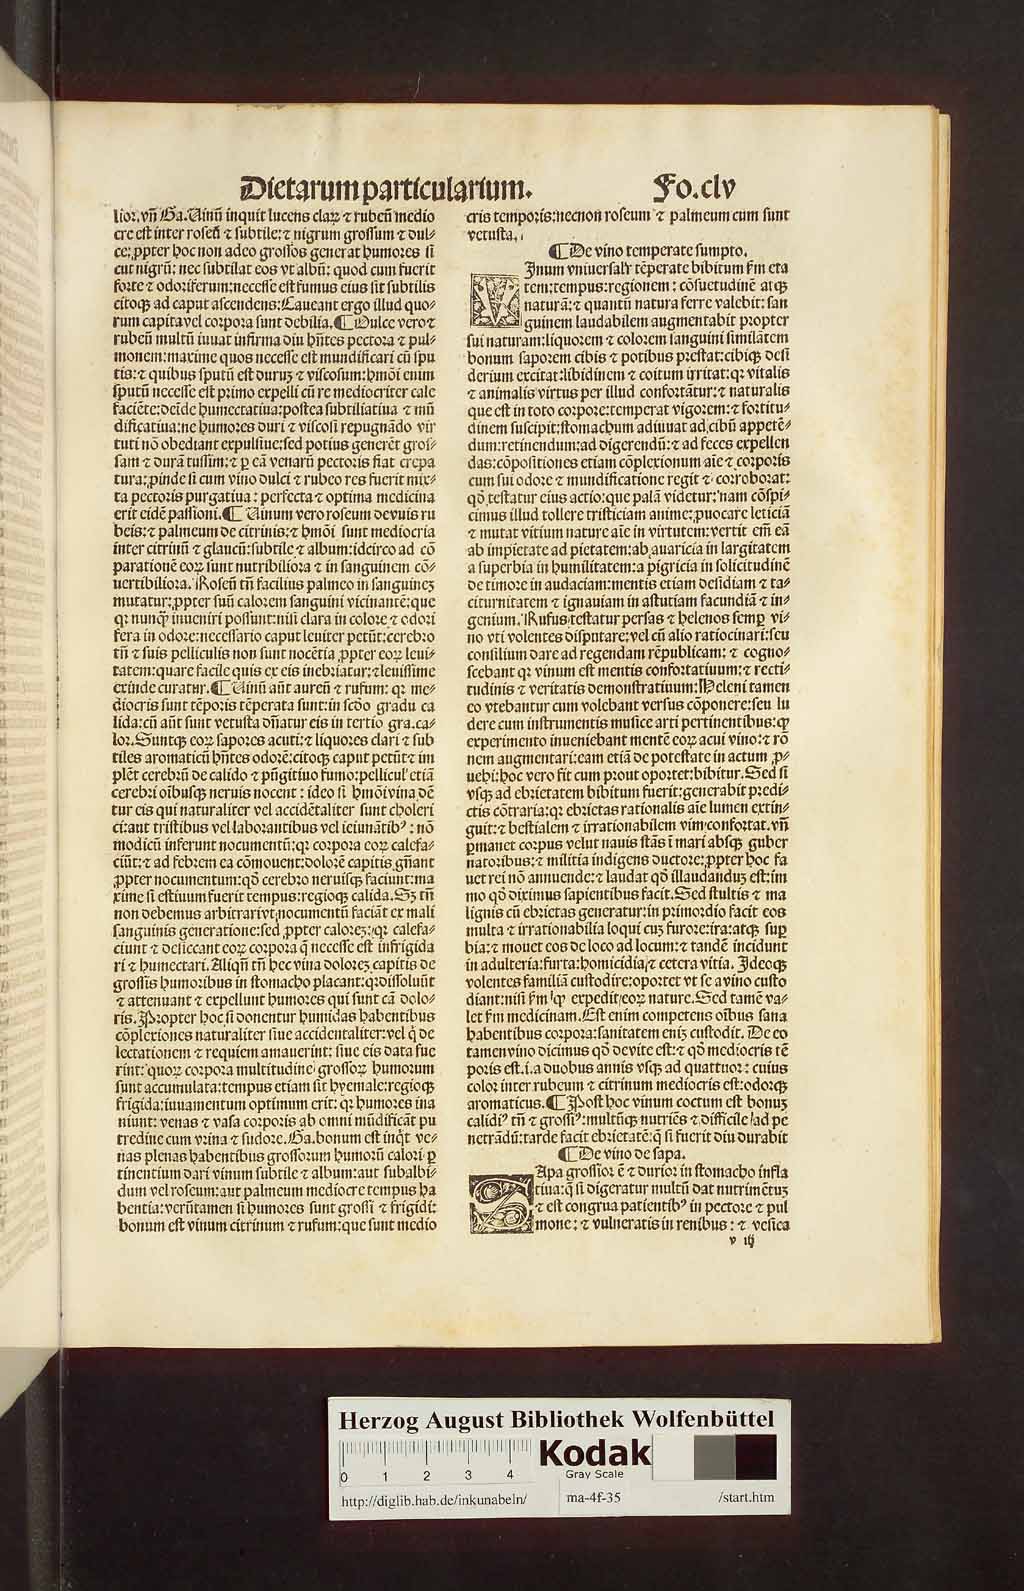 Dietarum particularium.
Fo.clv
lior.vñ Ga.Uinũ inquit lucens claꝝ ⁊ rubeũ medio
cre est inter roseũ ⁊ subtile:⁊ nigrum grossum ⁊ dul⸗
ce:ꝓpter hoc non adeo grossos generat humores si
cut nigrũ: nec subtilat eos vt albũ: quod cum fuerit
forte ⁊ odoriferum:necesse est fumus eius sit subtilis
citoqꝫ ad caput ascendens:Caueant ergo illud quo⸗
rum capita vel corpora sunt debilia.¶ Dulce vero ⁊
rubeũ multũ iuuat infirma diu hñtes pectora ⁊ pul⸗
monem:maxime quos necesse est mundificari cũ spu
tis:⁊ quibus sputũ est duruꝫ ⁊ viscosum:hmõi enim
sputũ necesse est primo expelli cũ re mediocriter cale
faciẽte:deĩde humectatiua:postea subtiliatiua ⁊ mũ
dificatiua:ne humores duri ⁊ viscosi repugnãdo vir
tuti nõ obediant expulsiue:sed potius generẽt gros⸗
sam ⁊ durã tussim:⁊ ꝑ eã venarũ pectoris fiat crepa
tura:ꝓinde si cum vino dulci ⁊ rubeo res fuerit mix⸗
ta pectoris purgatiua: perfecta ⁊ optima medicina
erit eidẽ passioni.¶ Uinum vero roseum de vuis ru
beis:⁊ palmeum de citrinis:⁊ hmõi sunt mediocria
inter citrinũ ⁊ glaucũ:subtile ⁊ album:idcirco ad cõ
parationẽ eoꝝ sunt nutribiliora ⁊ in sanguinem cõ⸗
uertibiliora. Roseũ tñ facilius palmeo in sanguineꝫ
mutatur:ꝓpter suũ calorem sanguini vicinantẽ:que
qꝛ nunqꝫ̃ inueniri possunt:nisi clara in colore ⁊ odori
fera in odore:necessario caput leuiter petũt:cerebro
tñ ⁊ suis pelliculis non sunt nocẽtia ꝓpter eoꝝ leui⸗
tatem:quare facile quis ex eis inebriatur:⁊ leuissime
exinde curatur.¶ Uinũ aũt aureũ ⁊ rufum: qꝛ me⸗
diocris sunt tẽporis tẽperata sunt:in scđo gradu ca
lida:cũ aũt sunt vetusta dñatur eis in tertio gra.ca⸗
lor.Suntqꝫ eoꝝ sapores acuti:⁊ liquores clari ⁊ sub
tiles aromaticũ hñtes odorẽ:citoqꝫ caput petũt ⁊ im
plẽt cerebrũ de calido ⁊ pũgitiuo fumo:pellicul' etiã
cerebri oĩbusqꝫ neruis nocent : ideo si hmõi vina dẽ
tur eis qui naturaliter vel accidẽtaliter sunt choleri
ci:aut tristibus vel laborantibus vel ieiunãtibꝰ: nõ
modicũ inferunt nocumentũ:qꝛ corpora eoꝝ calefa⸗
ciũt:⁊ ad febrem ea cõmouent:dolorẽ capitis gñant
ꝓpter nocumentum:qđ cerebro neruisqꝫ faciunt:ma
xime si estiuum fuerit tempus:regioqꝫ calida.Sꝫ tñ
non debemus arbitrari vt nocumentũ faciãt ex mali
sanguinis generatione:sed ꝓpter caloreꝫ: qꝛ calefa⸗
ciunt ⁊ desiccant eoꝝ corpora q̃ necesse est infrigida
ri ⁊ humectari.Aliqñ tñ hec vina doloreꝫ capitis de
grossis humoribus in stomacho placant:qꝛ dissoluũt
⁊ attenuant ⁊ expellunt humores qui sunt cã dolo⸗
ris.Propter hoc si donentur humidas habentibus
cõplexiones naturaliter siue accidentaliter:vel q̃ de
lectationem ⁊ requiem amauerint: siue eis data fue
rint: quoꝝ corpora multitudine grossoꝝ humorum
sunt accumulata:tempus etiam sit hyemale:regioqꝫ
frigida:iuuamentum optimum erit: qꝛ humores ina
niunt: venas ⁊ vasa corporis ab omni mũdificãt pu
tredine cum vrina ⁊ sudore.Ga.bonum est inq̃t ve⸗
nas plenas habentibus grossorum humorũ calori ꝑ
tinentium dari vinum subtile ⁊ album:aut subalbi⸗
dum vel roseum:aut palmeum mediocre tempus ha
bentia:verũtamen si humores sunt grossi ⁊ frigidi:
bonum est vinum citrinum ⁊ rufum:que sunt medio
cris temporis:necnon roseum ⁊ palmeum cum sunt
vetusta.
¶De vino temperate sumpto.
VJnum vniuersalr̃ tẽperate bibitum ẜm eta
tem:tempus:regionem: cõsuetudinẽ atqꝫ
naturã:⁊ quantũ natura ferre valebit: san
guinem laudabilem augmentabit propter
sui naturam:liquorem ⁊ colorem sanguini similãtem
bonum saporem cibis ⁊ potibus prestat:cibiqꝫ desi
derium excitat:libidinem ⁊ coitum irritat:qꝛ vitalis
⁊ animalis virtus per illud confortãtur:⁊ naturalis
que est in toto corpore:temperat vigorem:⁊ fortitu⸗
dinem suscipit:stomachum adiuuat ad cibũ appetẽ⸗
dum:retinendum:ad digerendũ:⁊ ad feces expellen
das:cõpositiones etiam cõplexionum aĩe ⁊ corporis
cum sui odore ⁊ mundificatione regit ⁊ corroborat:
qđ testatur eius actio:que palã videtur: nam cõspi⸗
cimus illud tollere tristiciam anime:ꝓuocare leticiã
⁊ mutat vitium nature aĩe in virtutem:vertit em̃ eã
ab impietate ad pietatem:ab auaricia in largitatem
a superbia in humilitatem:a pigricia in solicitudinẽ
de timore in audaciam:mentis etiam desidiam ⁊ ta⸗
citurnitatem ⁊ ignauiam in astutiam facundiã ⁊ in⸗
genium.Rufus testatur persas ⁊ helenos semꝑ vi⸗
no vti volentes disputare:vel cũ alio ratiocinari:seu
consilium dare ad regendam rẽpublicam: ⁊ cogno⸗
scebant qꝛ vinum est mentis confortatiuum:⁊ recti⸗
tudinis ⁊ veritatis demonstratiuum:Heleni tamen
eo vtebantur cum volebant versus cõponere:seu lu
dere cum instrumentis musice arti pertinentibus:qꝛ
experimento inueniebant mentẽ eoꝝ acui vino:⁊ rõ
nem augmentari:eam etiã de potestate in actum ꝓ⸗
uehi:hoc vero fit cum prout oportet:bibitur.Sed si
vsqꝫ ad ebrietatem bibitum fuerit:generabit predi⸗
ctis cõtraria:qꝛ ebrietas rationalis aĩe lumen extin⸗
guit:⁊ bestialem ⁊ irrationabilem vim confortat.vñ
ꝑmanet corpus velut nauis stãs ĩ mari absqꝫ guber
natoribus:⁊ militia indigens ductore:ꝓpter hoc fa
uet rei nõ annuende:⁊ laudat qđ illaudanduꝫ est:im
mo qđ diximus sapientibus facit.Sed stultis ⁊ ma
lignis cũ ebrietas generatur:in primordio facit eos
multa ⁊ irrationabilia loqui cuꝫ furore:ira:atqꝫ suꝑ
bia:⁊ mouet eos de loco ad locum:⁊ tandẽ incidunt
in adulteria:furta:homicidia:⁊ cetera vitia. Jdeoqꝫ
volentes familiã custodire:oportet vt se a vino custo
diant:nisi ẜm qꝙ expedit eoꝝ nature.Sed tamẽ va⸗
let ẜm medicinam.Est enim competens oĩbus sana
habentibus corpora:sanitatem eniꝫ custodit. De eo
tamen vino dicimus qđ de vite est:⁊ qđ mediocris tẽ
poris est.i.a duobus annis vsqꝫ ad quattuor: cuius
color inter rubeum ⁊ citrinum mediocris est:odorqꝫ
aromaticus.¶ Post hoc vinum coctum est bonuꝫ
calidiꝰ tñ ⁊ grossiꝰ:multũqꝫ nutriẽs ⁊ difficile ad pe
netrãdũ:tarde facit ebrietatẽ:q̃ si fuerit diu durabit
¶De vino de sapa.
SApa grossior ẽ ⁊ durior in stomacho infla
tiua:q̃ si digeratur multũ dat nutrimẽtuꝫ
⁊ est congrua patientibꝰ in pectore ⁊ pul
mone: ⁊ vulneratis in renibus: ⁊ vesica
v iij
Herzog August Bibliothek Wolfenbüttel
0 1 2 3 4
Kodak
Gray Scale
http://diglib.hab.de/inkunabeln/
ma-4f-35
/start.htm